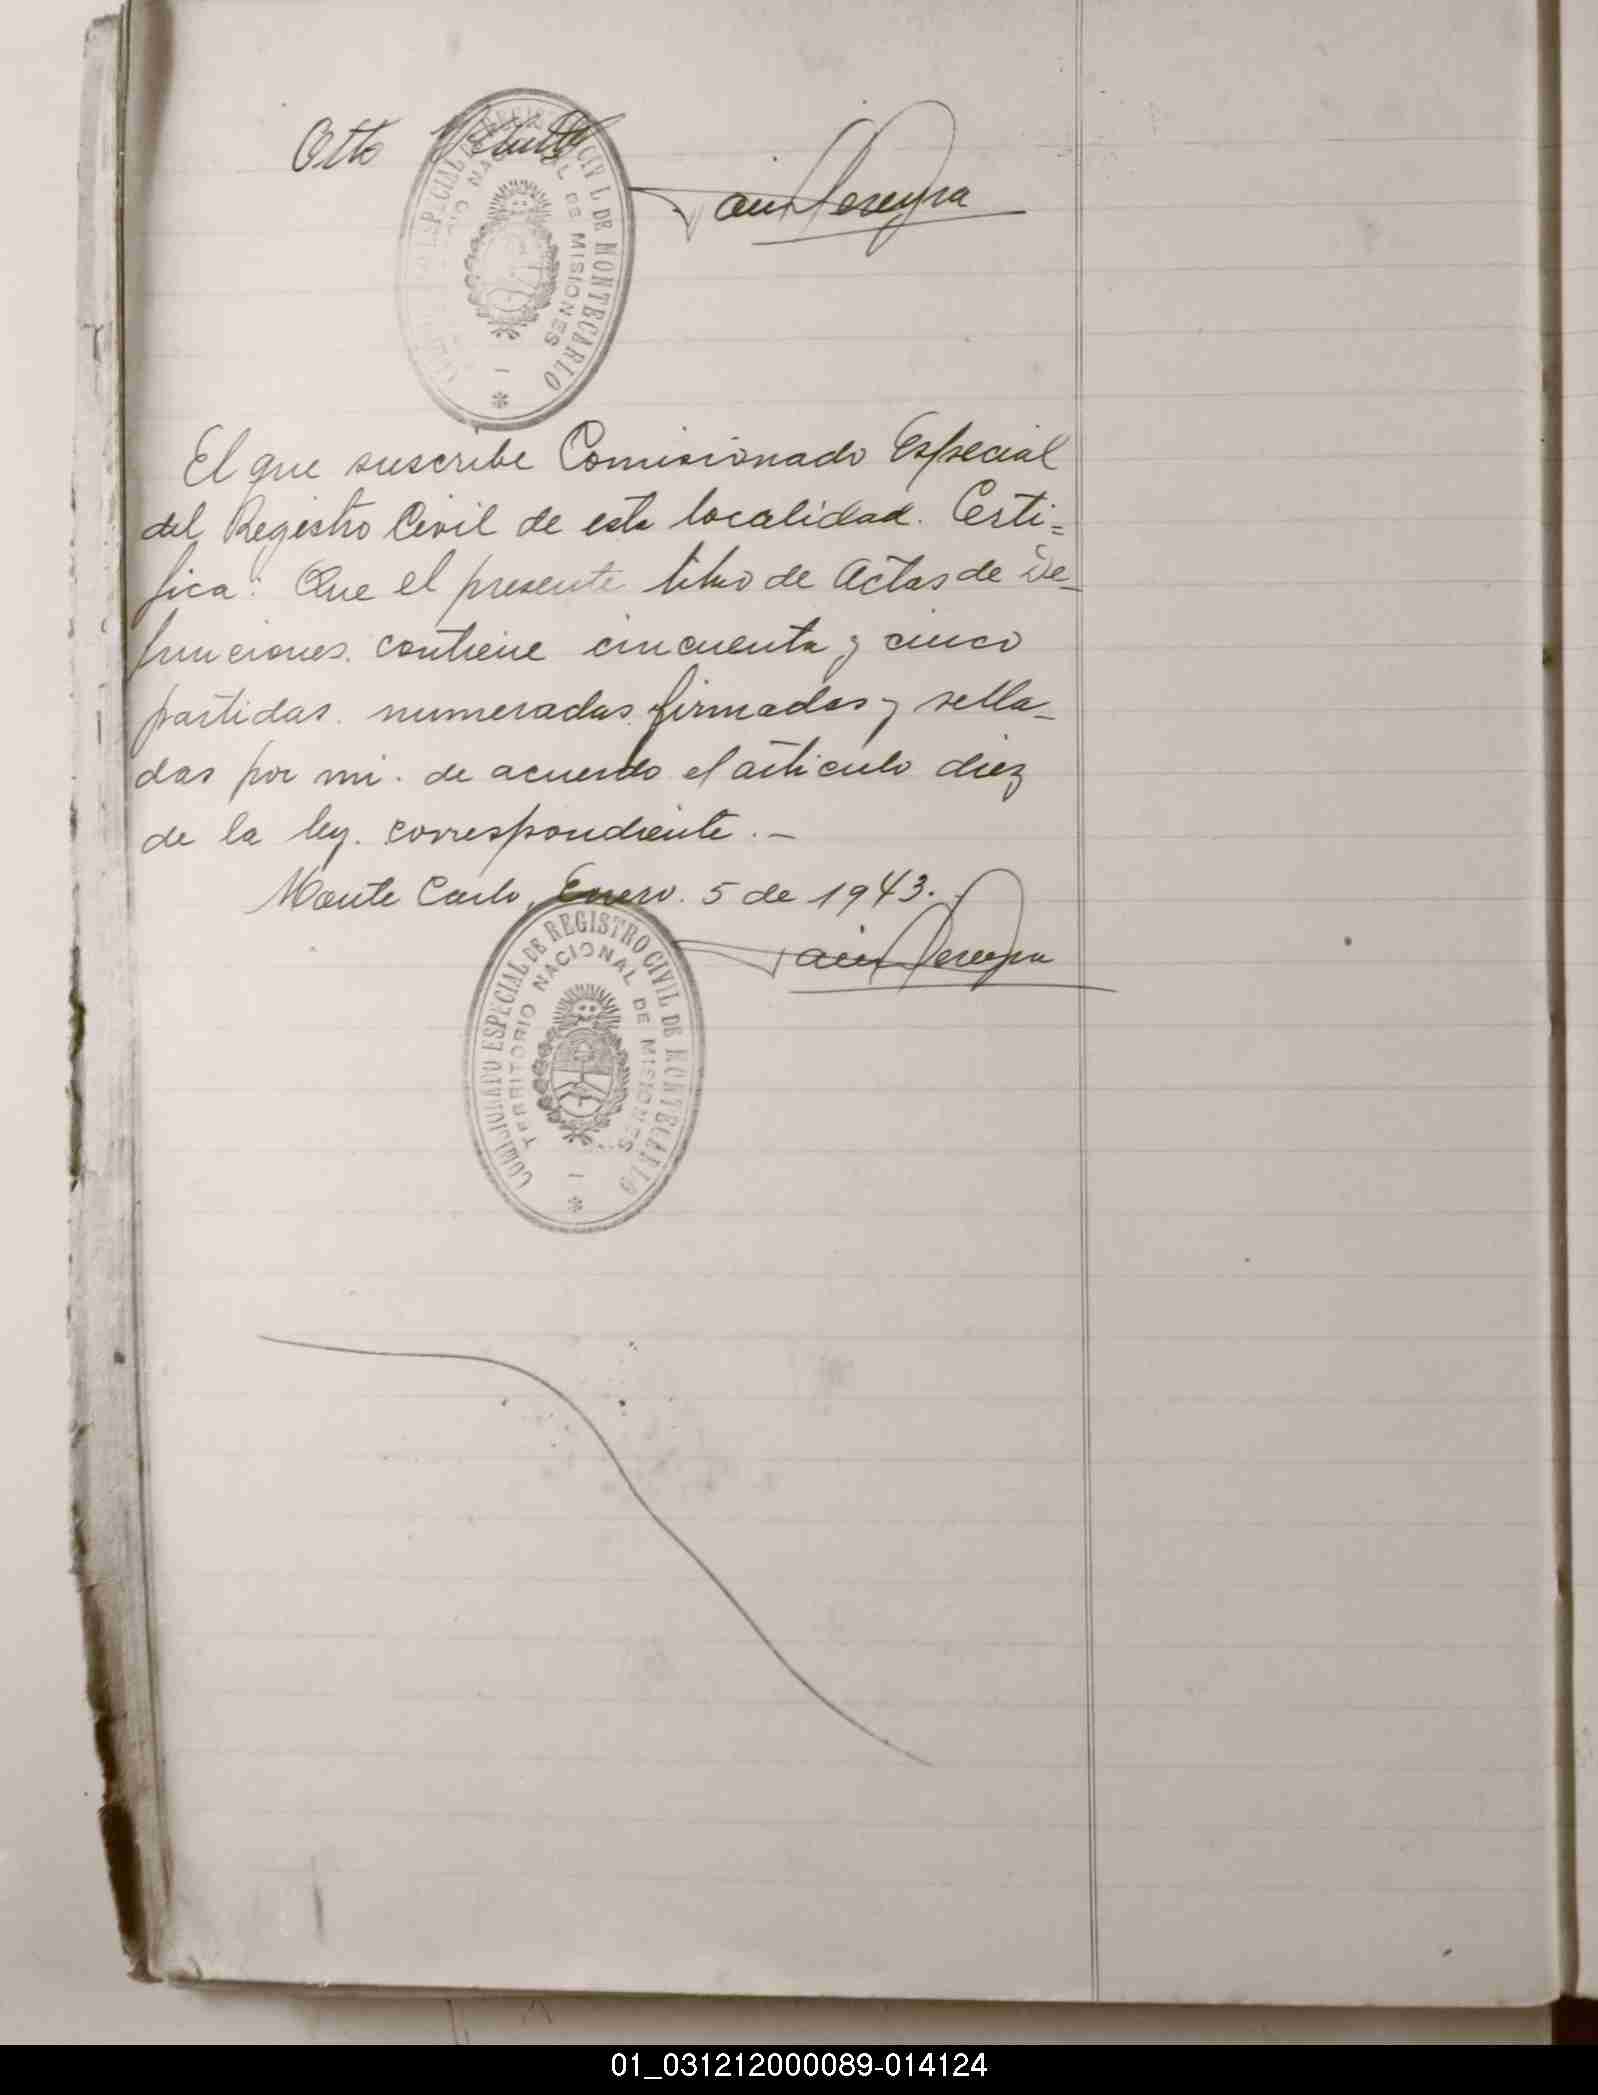 Otto
Pereyra
COMISIONADO ESPECIAL DE REGISTRO CIVIL DE MONTECARLO
TERRITORIO NACIONAL DE MISIONES
1
El que suscribe Comisionado Especial
del Registro Civil de esta localidad. Certi=
fica: Que el presente libro de Actas de De-
funciones. contiene cincuenta y cinco
partidas. numeradas. firmadas y sella-
das por mi. de acuerdo el artículo diez
de la ley. correspondiente.-
Monte Carlo, Enero. 5 de 1943.
Pereyra
COMISIONADO ESPECIAL DE REGISTRO CIVIL DE MONTECARLO
TERRITORIO NACIONAL DE MISIONES
1
01_031212000089-014124